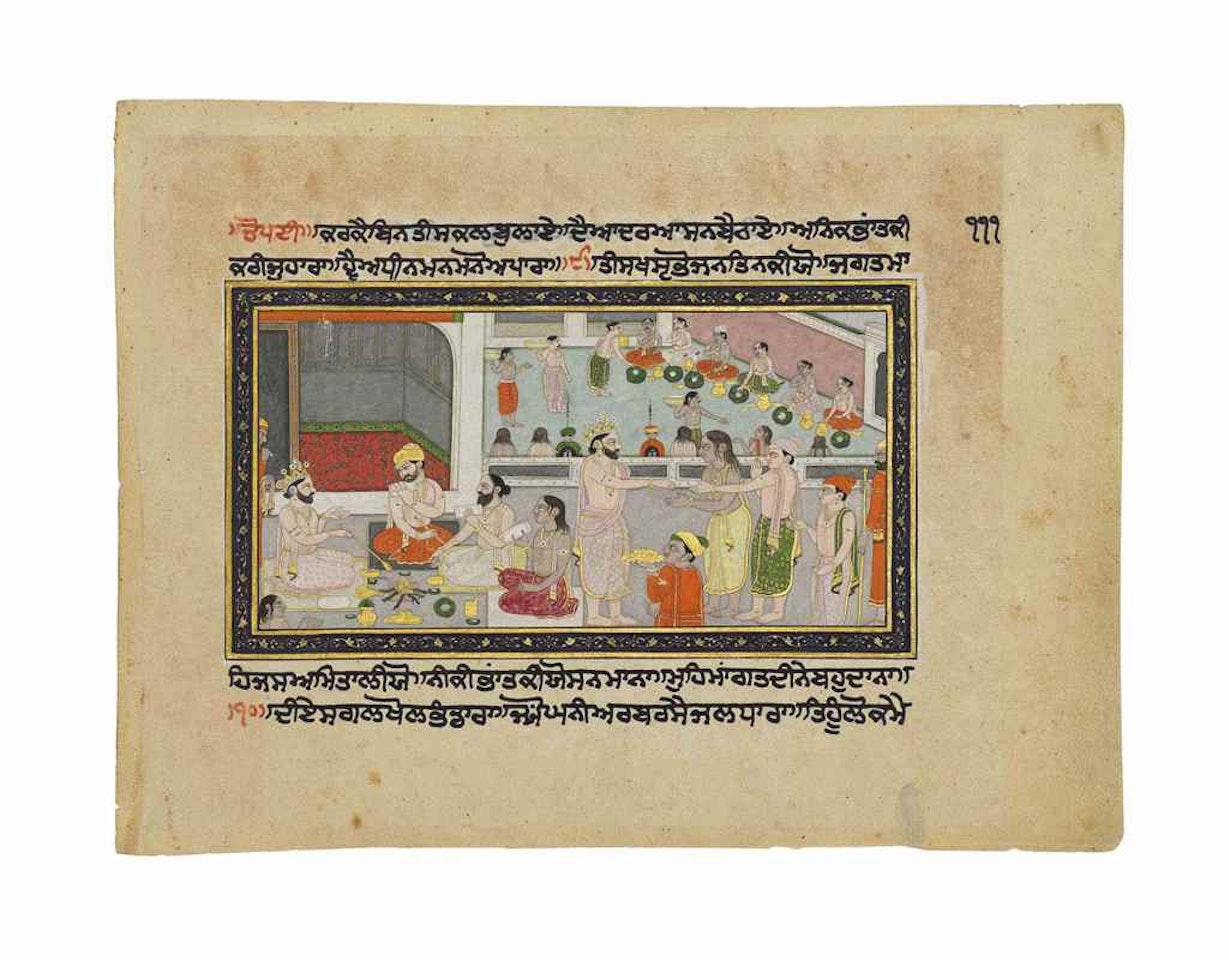 ॥ਚੌਪਈ॥ਕਰਕੈਬਿਨਤੀਸਕਲਬੁਲਾਏ॥ਦੈਆਦਰਆਸਨਬੈਠਾਏ॥ਅਨਿਕਭਾਂਤਕੀ
੧੧੧
ਕਰੀਜੁਹਾਰਾ॥ਹ੍ਵੈਅਧੀਨਮਨਮੋਨੋਅਪਾਰਾ॥੯॥ਤੀਸਖਸ੍ਰਭੋਜਨਤਿਨਕੀਯੋ॥ਜਗਤਮਾ
ਹਿਜਸਅਮਿਤਾਲੀਯੋ॥ਨੀਕੀਭਾਂਤਕੀਯੋਸਨਮਾਨਾ॥ਮੁਹਿਮਾਂਗਤਦੀਨੇਬਹੁਦਾਨਾ॥
॥੧੦॥ਦੀਏਸਗਲਖੋਲਭੰਡਾਰਾ॥ਜ੍ਯੋਂਘਨੀਅਰਬਰਸੈਜਲਧਾਰਾ॥ਤਿਹੂੰਲੋਕਮੈ